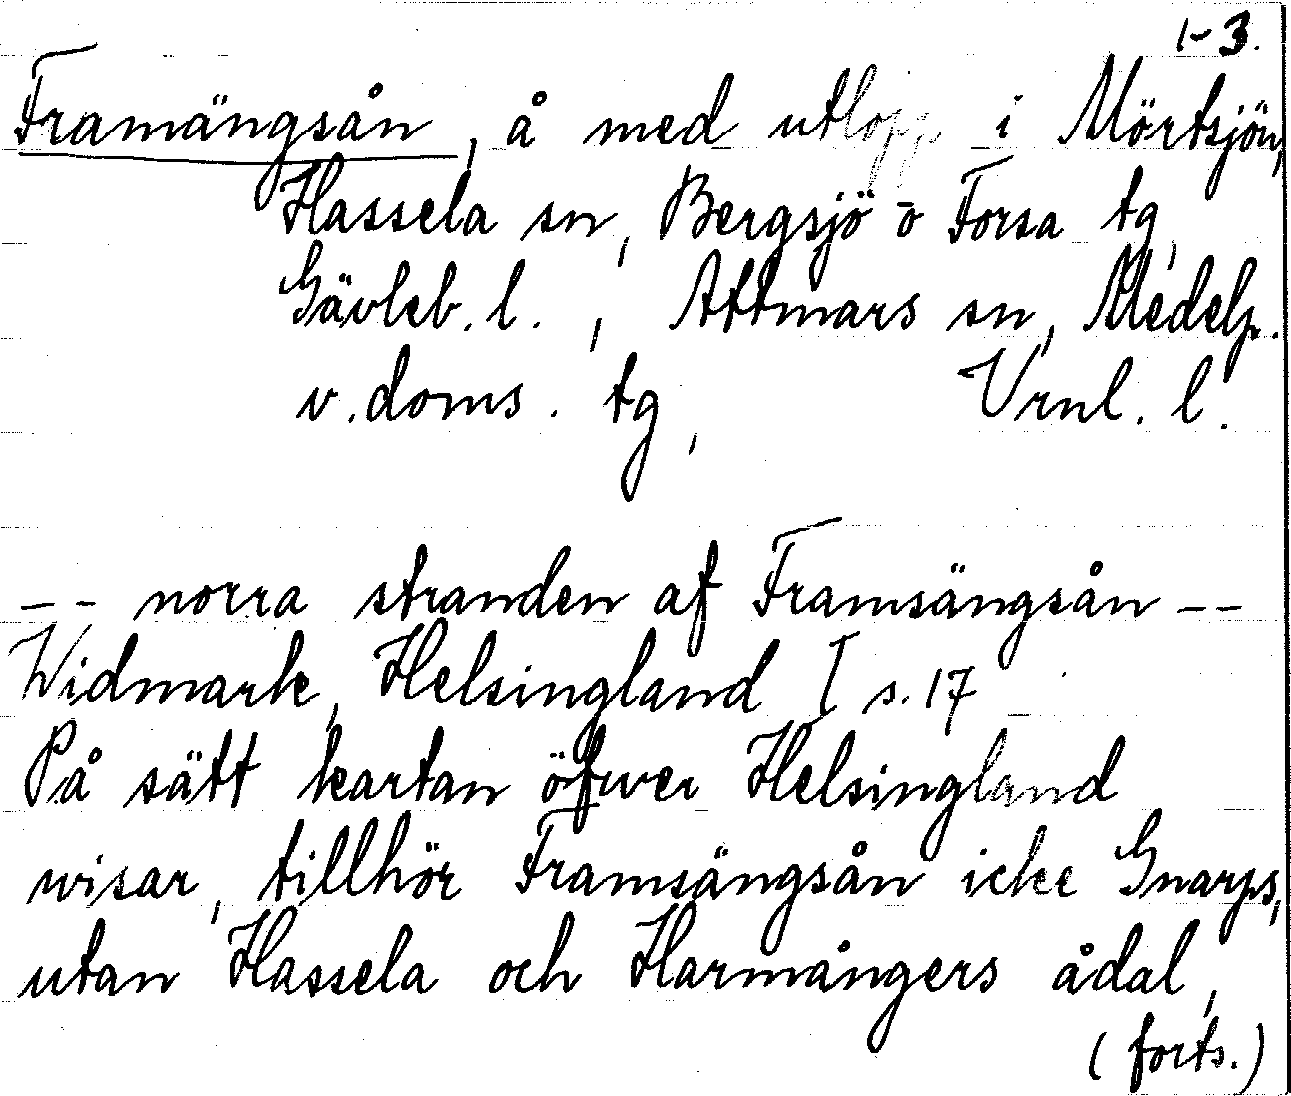 1-3.
Framängsån, å med utlopp i Mörtsjön,
Hassela sn, Bergsjö o Forsa tg,
Gävleb. l., Attmars sn, Medelp.
v. doms. tg, Vrnl. l.
-- norra stranden af Framsängsån --
Widmark, Helsingland I s. 17
På sätt kartan öfwer Helsingland
wisar, tillhör Framsängsån icke Gnarps,
utan Hassela och Harmångers ådal,
(forts.)